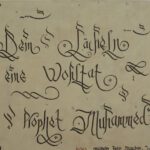 Dein Lächeln
eine Wohltat
Prophet Muhammed